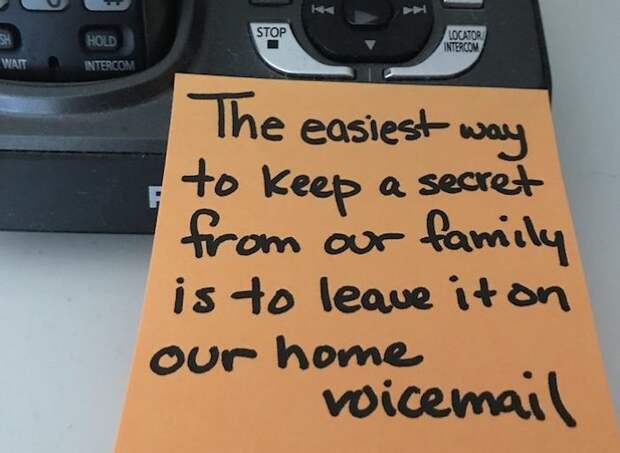 SH
HOLD
WAIT
INTERCOM
STOP
LOCATOR/
INTERCOM
The easiest way
to keep a secret
from our family
is to leave it on
our home
voicemail